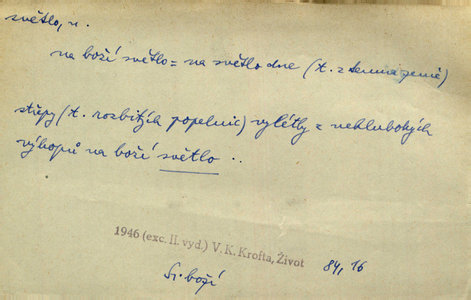 světlo, n.
na boží světlo = na světlo dne (t. z temna země)
střepy (t. rozbitých popelnic) vylétly z nehlubokých
výkopů na boží světlo ..
1946 (exc. II. vyd.) V. K. Krofta, Život 84, 16
Sr. boží